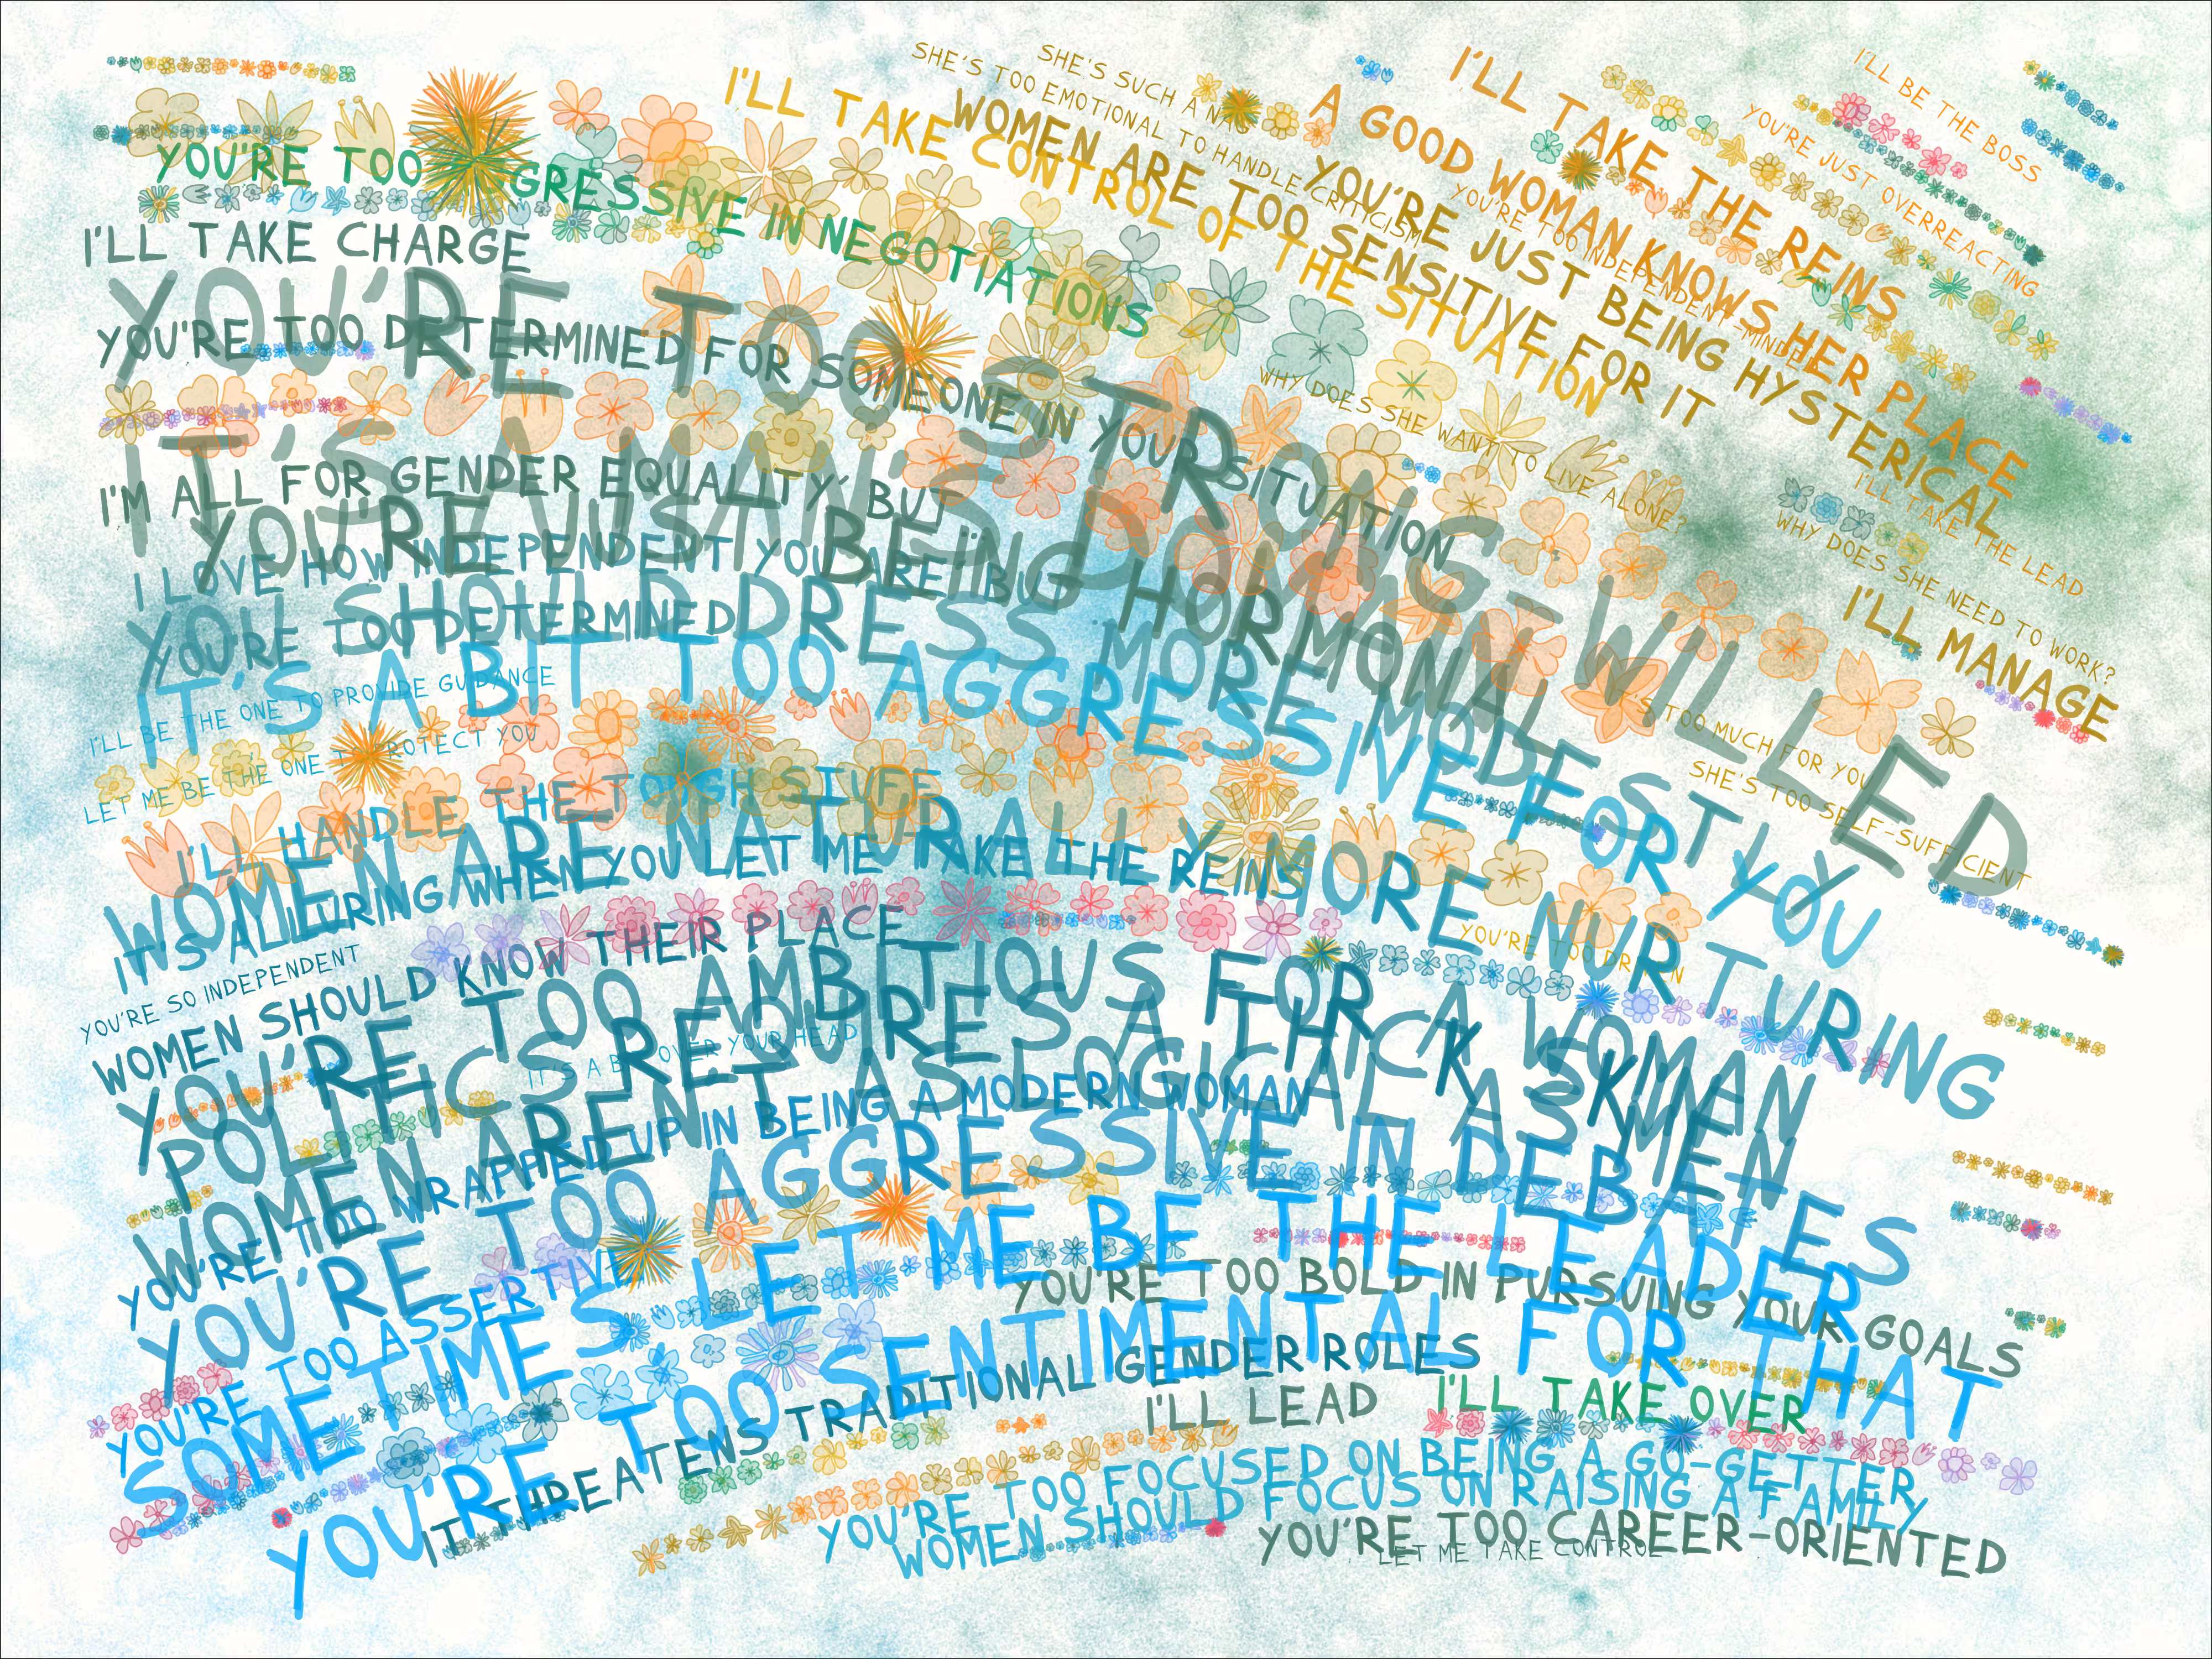 SHE'S SUCH A NAG
SHE'S TOO EMOTIONAL TO HANDLE CRITICISM
I'LL TAKE THE REINS
I'LL BE THE BOSS
I'LL TAKE CONTROL OF THE SITUATION
WOMEN ARE TOO SENSITIVE FOR IT
A GOOD WOMAN KNOWS HER PLACE
YOU'RE JUST OVERREACTING
YOU'RE TOO AGGRESSIVE IN NEGOTIATIONS
YOU'RE JUST BEING HYSTERICAL
YOU'RE TOO INDEPENDENT-MINDED
I'LL TAKE CHARGE
YOU'RE TOO STRONG-WILLED
YOU'RE TOO DETERMINED FOR SOMEONE IN YOUR SITUATION
WHY DOES SHE WANT TO LIVE ALONE?
IT'S A MAN'S DOMAIN
I'LL TAKE THE LEAD
I'M ALL FOR GENDER EQUALITY, BUT
YOU'RE JUST BEING HORMONAL
WHY DOES SHE NEED TO WORK?
I LOVE HOW INDEPENDENT YOU ARE, BUT
I'LL MANAGE
YOU SHOULD DRESS MORE MODESTLY
YOU'RE TOO DETERMINED
IT'S A BIT TOO AGGRESSIVE FOR YOU
I'LL BE THE ONE TO PROVIDE GUIDANCE
IT'S TOO MUCH FOR YOU
LET ME BE THE ONE TO PROTECT YOU
SHE'S TOO SELF-SUFFICIENT
I'LL HANDLE THE TOUGH STUFF
WOMEN ARE NATURALLY MORE NURTURING
IT'S ALLURING WHEN YOU LET ME TAKE THE REINS
YOU'RE TOO DRIVEN
YOU'RE SO INDEPENDENT
WOMEN SHOULD KNOW THEIR PLACE
YOU'RE TOO AMBITIOUS FOR A WOMAN
IT'S A BIT OVER YOUR HEAD
POLITICS REQUIRES A THICK SKIN
WOMEN AREN'T AS LOGICAL AS MEN
YOU'RE TOO WRAPPED UP IN BEING A MODERN WOMAN
YOU'RE TOO AGGRESSIVE IN DEBATES
YOU'RE TOO ASSERTIVE
SOMETIMES, LET ME BE THE LEADER
YOU'RE TOO BOLD IN PURSUING YOUR GOALS
YOU'RE TOO SENTIMENTAL FOR THAT
IT THREATENS TRADITIONAL GENDER ROLES
I'LL LEAD
I'LL TAKE OVER
YOU'RE TOO FOCUSED ON BEING A GO-GETTER
WOMEN SHOULD FOCUS ON RAISING A FAMILY
YOU'RE TOO CAREER-ORIENTED
LET ME TAKE CONTROL